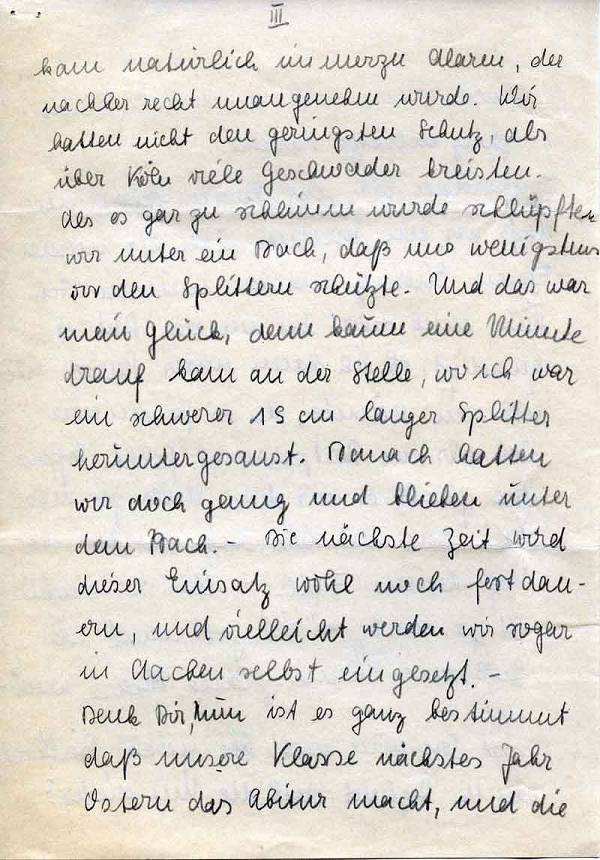 III
kam natürlich immerzu Alarm, der
nachher recht unangenehm wurde. Wir
hatten nicht den geringsten Schutz, als
über Köln viele Geschwader kreisten.
Als es gar zu schlimm wurde schlüpften
wir unter ein Dach, daß uns wenigstens
vor den Splittern schützte. Und das war
mein Glück, denn kaum eine Minute
drauf kam an der Stelle, wo ich war
ein schwerer 15 cm langer Splitter
heruntergesaust. Danach hatten
wir doch genug und blieben unter
dem Dach. – Die nächste Zeit wird
dieser Einsatz wohl noch fortdau-
ern, und vielleicht werden wir sogar
in Aachen selbst eingesetzt. –
Denk Dir, nun ist es ganz bestimmt
daß unsere Klasse nächstes Jahr
Ostern das Abitur macht, und die